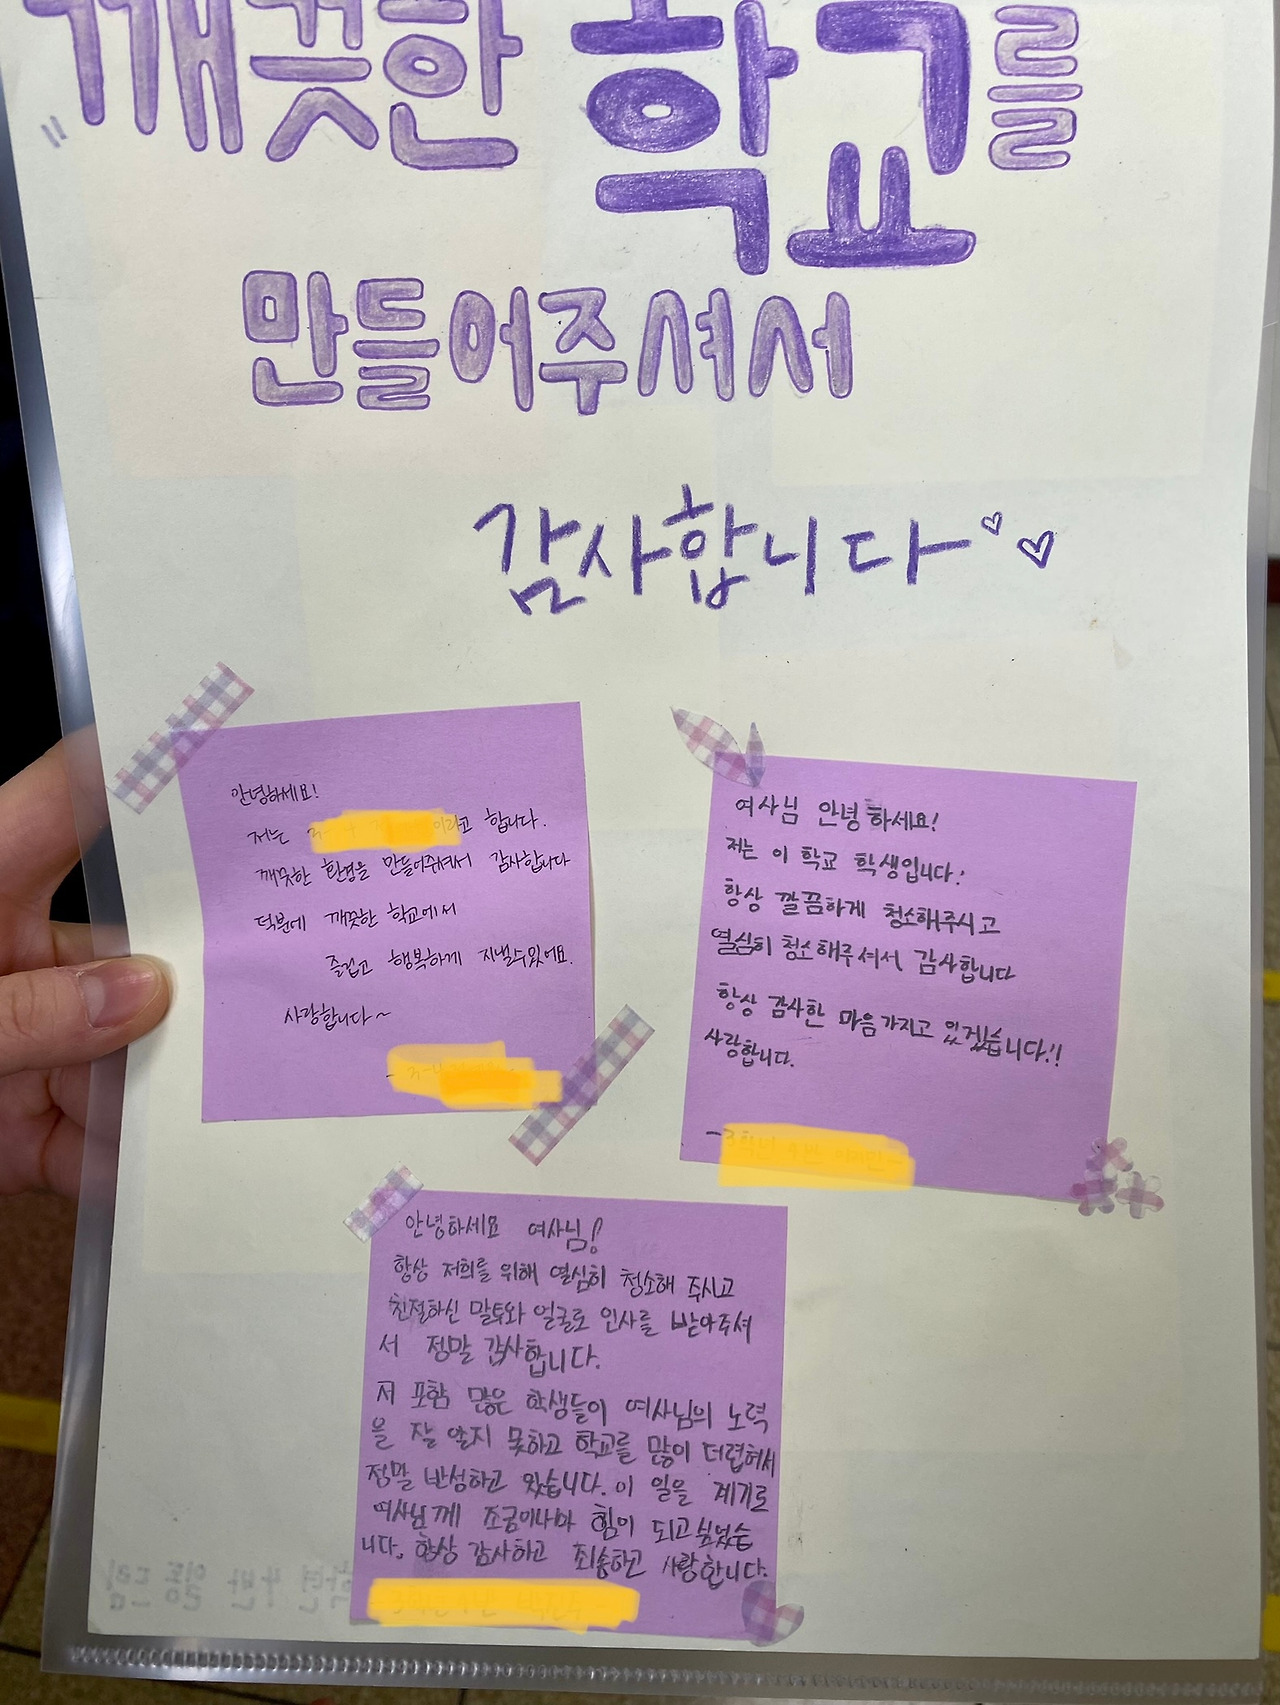 깨끗한 학교를
만들어주셔서
감사합니다
안녕하세요!
저는 이라고 합니다.
깨끗한 환경을 만들어주셔서 감사합니다
덕분에 깨끗한 학교에서
즐겁고 행복하게 지낼수있어요.
사랑합니다~
여사님 안녕하세요!
저는 이 학교 학생입니다!
항상 깔끔하게 청소해주시고
열심히 청소해주셔서 감사합니다
항상 감사한 마음가지고 있겠습니다!!
사랑합니다.
안녕하세요 여사님!
항상 저희를 위해 열심히 청소해 주시고
친절하신 말투와 얼굴로 인사를 받아주셔
서 정말 감사합니다.
저 포함 많은 학생들이 여사님의 노력
을 잘 알지 못하고 학교를 많이 더렵혀서
정말 반성하고 있습니다. 이 일을 계기로
여사님께 조금이나마 힘이 되고싶었습
니다. 항상 감사하고 죄송하고 사랑합니다.